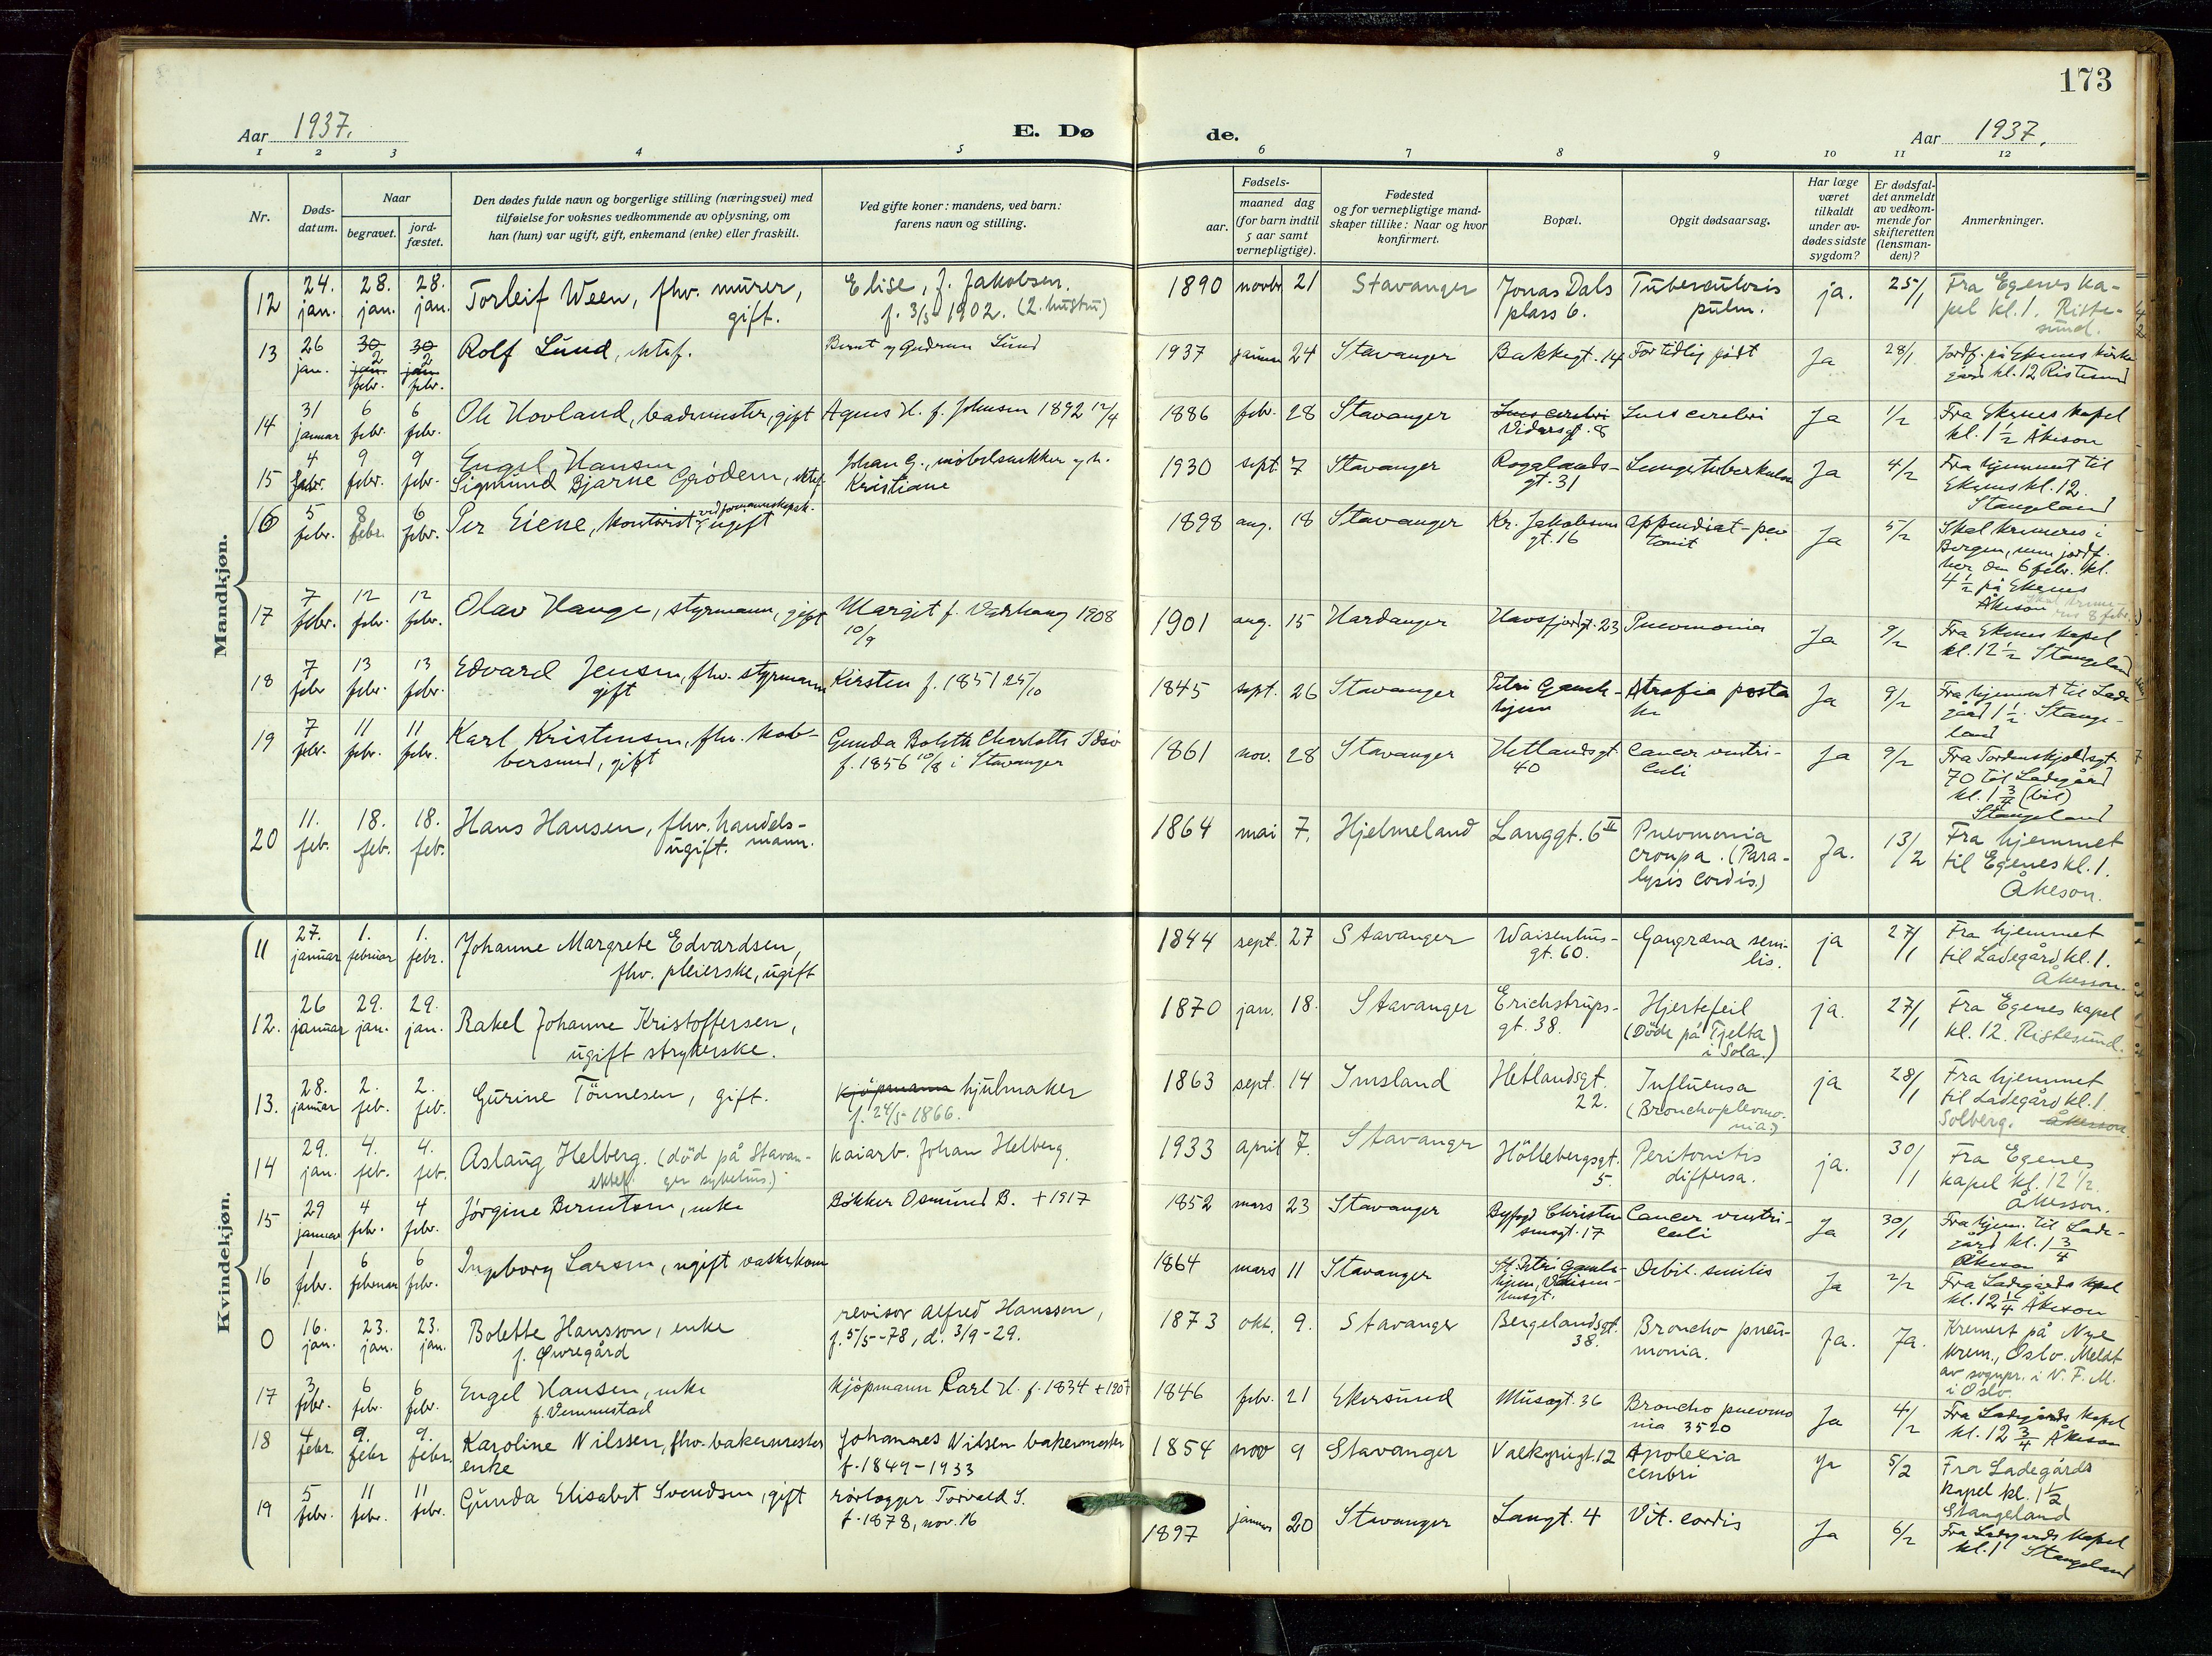 173
Aar 1937.
E. Dø de.
Aar 1937.
1 2 3 4 5 6 7 8 9 10 11 12
Nr.
Dødsdatum.
Naar
begravet.
jordfæstet.
Den dødes fulde navn og borgerlige stilling (næringsvei) med
tilføielse for voksnes vedkommende av oplysning, om
han (hun) var ugift, gift, enkemand (enke) eller fraskilt.
Ved gifte koner: mandens, ved barn:
farens navn og stilling.
Fødsels-
aar.
maaned dag
(for barn indtil
5 aar samt
vernepligtige).
Fødested
og for vernepligtige mand-
skaper tillike: Naar og hvor
konfirmert.
Bopæl.
Opgit dødsaarsag.
Har læge
været
tilkaldt
under av-
dødes sidste
sygdom?
Er dødsfal-
det anmeldt
av vedkom-
mende for
skifteretten
(lensman-
den)?
Anmerkninger.
Mandkjøn.
12 24. jan. 28. jan. 28. jan. Torleif Ween, fhv. murer, gift. Elise, f. Jakobsen. f. 3/3 1902. (2. hustru) 1890 novbr 21 Stavanger Jonas Dals plass 6. Tuberculosis pulm. ja. 25/1 Fra Egenes ka-
pel kl. 1. Riste-
sund.
13 26 jan. 30 jan. 2 febr. 30 jan. 2 febr. Rolf Lund, ektef. Bernt og Gudrun Lund 1937 januar 24 Stavanger Bakkegt. 14 For tidlig født Ja 28/1 Jordf. på Ekenes kirke
gård kl. 12 Ristesund
14 31 januar 6 febr. 6 febr. Ole Hovland, bademester, gift Agnes H. f. Johnsen 1892 12/4 1886 febr. 28 Stavanger Lues cerebri Vidarsgt. 8 Lues cerebri Ja 1/2 Fra Ekenes kapel
kl. 1 1/2 Åkeson
15 4 febr. 9 febr. 9 febr. Engel Hansen
Sigmund Bjarne Grödem, ektef. Johan G., møbelsnekker og h.
Kristiane 1930 sept. 7 Stavanger Rogalands-
gt. 31 Lungetuberkulose Ja 4/2 Fra hjemmet til
Ekenes kl. 12.
Stangeland
16 5 febr. 8 febr. 6 febr. Per Eiene, kontorist, ugift 1898 aug. 18 Stavanger Kr. Jakobsens
gt. 16 appendicit-peri
tonit Ja 5/2 Skal kremeres i
Bergen, men jordf.
her den 6 febr. kl.
4 1/2 på Ekenes
Åkeson
17 7 febr. 12 febr. 12 febr. Olav Hauge, styrmann, gift Margit f. Varhaug 1908
10/9 1901 aug. 15 Hardanger Havsfjordgt. 23 Pneumonia Ja 9/2 Fra Ekenes kapel
kl. 12 1/2 Stangeland
18 7 febr 13 febr. 13 febr. Edvard Jensen, fhv. styrmann
gift Kirsten f. 1851 25/10 1845 sept. 26 Stavanger Petri Gamle-
hjem Ja 9/2 Fra hjemmet til Lade
gård 1 1/2. Stange-
land
19 7 febr. 11 febr. 11 febr. Karl Kristensen, fhv. kob-
bersmed, gift Gunda Bolette Charlotte Idsö
f. 1856 10/8 i Stavanger 1861 nov. 28 Stavanger Hetlandsgt
40 Cancer ventri-
culi Ja 9/2 Fra Tordenskjoldsgt.
70 til Ladegård
kl. 1 3/4 (bil)
Stangeland
20 11. feb. 18. feb. 18. feb. Hans Hansen, fhv. handels-
mann. ugift. 1864 mai 7. Hjelmeland Langgt. 6 II Pneumonia
croupa. (Para-
lysis cordis.) Ja. 13/2 Fra hjemmet
til Egenes kl. 1.
Åkeson.
Kvindekjøn.
11 27. januar 1. februar 1. febr. Johanne Margrete Edvardsen,
fhv. pleierske, ugift 1844 sept. 27 Stavanger Waisenhus-
gt. 60. Gangræna seni-
lis. ja 27/1 Fra hjemmet
til Ladegård kl. 1.
Åkesson.
12. 26 januar 29. jan. 29. jan. Rakel Johanne Kristoffersen,
ugift strykerske. 1870 jan. 18. Stavanger Erichstrups-
gt. 38. Hjertefeil
(Döde på Tjelta
i Sola.) ja. 27/1 Fra Egenes kapel
kl. 12. Ristesund.
13. 28. januar 2. feb. 2. feb. Gurine Tönnesen, gift. kjöpmann hjulmaker
f. 24/5 1866. 1863 sept. 14 Imsland Hetlandsgt.
22. Influensa
(Bronchopleumo-
nia) ja 28/1 Fra hjemmet
til Ladegård kl. 1.
Solberg. Åkerson
14 29. jan. 4. feb. 4. feb. Aslaug Helberg. (död på Stavan-
ektef. ger sykehus.) kaiarb. Johan Helberg. 1933 april 7. Stavanger Höllebergsgt.
5. Peritonitis
differsa. ja. 30/1 Fra Egenes
kapel kl. 12 1/2.
Åkesson.
15 29 januar 4 febr. 4 febr. Jörgine Berntsen, enke Bökker Osmund B. + 1917 1852 mars 23 Stavanger Byfogd Christen
sensgt. 17 Cancer ventri-
culi Ja 30/1 Fra hjem. til Lade-
gård kl. 1 3/4
Åkeson
16 1 febr. 6 februar 6 febr. Ingeborg Larsen, ugift vaskekone 1864 mars 11 Stavanger St. Petri Gamle-
hjem, Vaisen-
husgt. Debil. senilis Ja 2/2 Fra Ladegårds kapel
kl. 12 1/4 Åkeson
0 16. jan. 23. jan. 23. jan. Bolette Hansson, enke
f. Øvregård revisor Alfred Hanssen,
f. 5/5-78, d. 3/9-29. 1873 okt. 9. Stavanger Bergelandsgt.
38. Broncho pneu-
monia. Ja. Ja. Kremert på Nye
krem., Oslo. Meldt
av sognpr. i V. F. M.
i Oslo.
17 3 febr. 6 febr. 6 febr. Engel Hansen, enke
f. Vemmestad kjöpmann Carl H. f. 1834 + 1907 1846 febr. 21 Ekersund Musegt. 36 Broncho pneumo
nia 3520 Ja 4/2 Fra Ladegårds kapel
kl. 12 3/4 Åkeson
18 4 febr. 9. febr 9. febr. Karoline Nilssen, fhv. bakermester
enke Johannes Nilsen bakermester
f. 1849-1933 1854 nov 9 Stavanger Valkyrigt. 12 Apolexia
cerebri Ja 5/2 Fra Ladegårds
kapel kl. 1 1/2
Stangeland
19 5 febr. 11 febr. 11 febr. Gunda Elisabet Svendsen, gift rörlegger Torvald S.
f. 1878, nov. 16 1897 januar 20 Stavanger Langt. 4 Vit. cordis Ja 6/2 Fra Ladegårds kapel
kl. 1 Stangeland